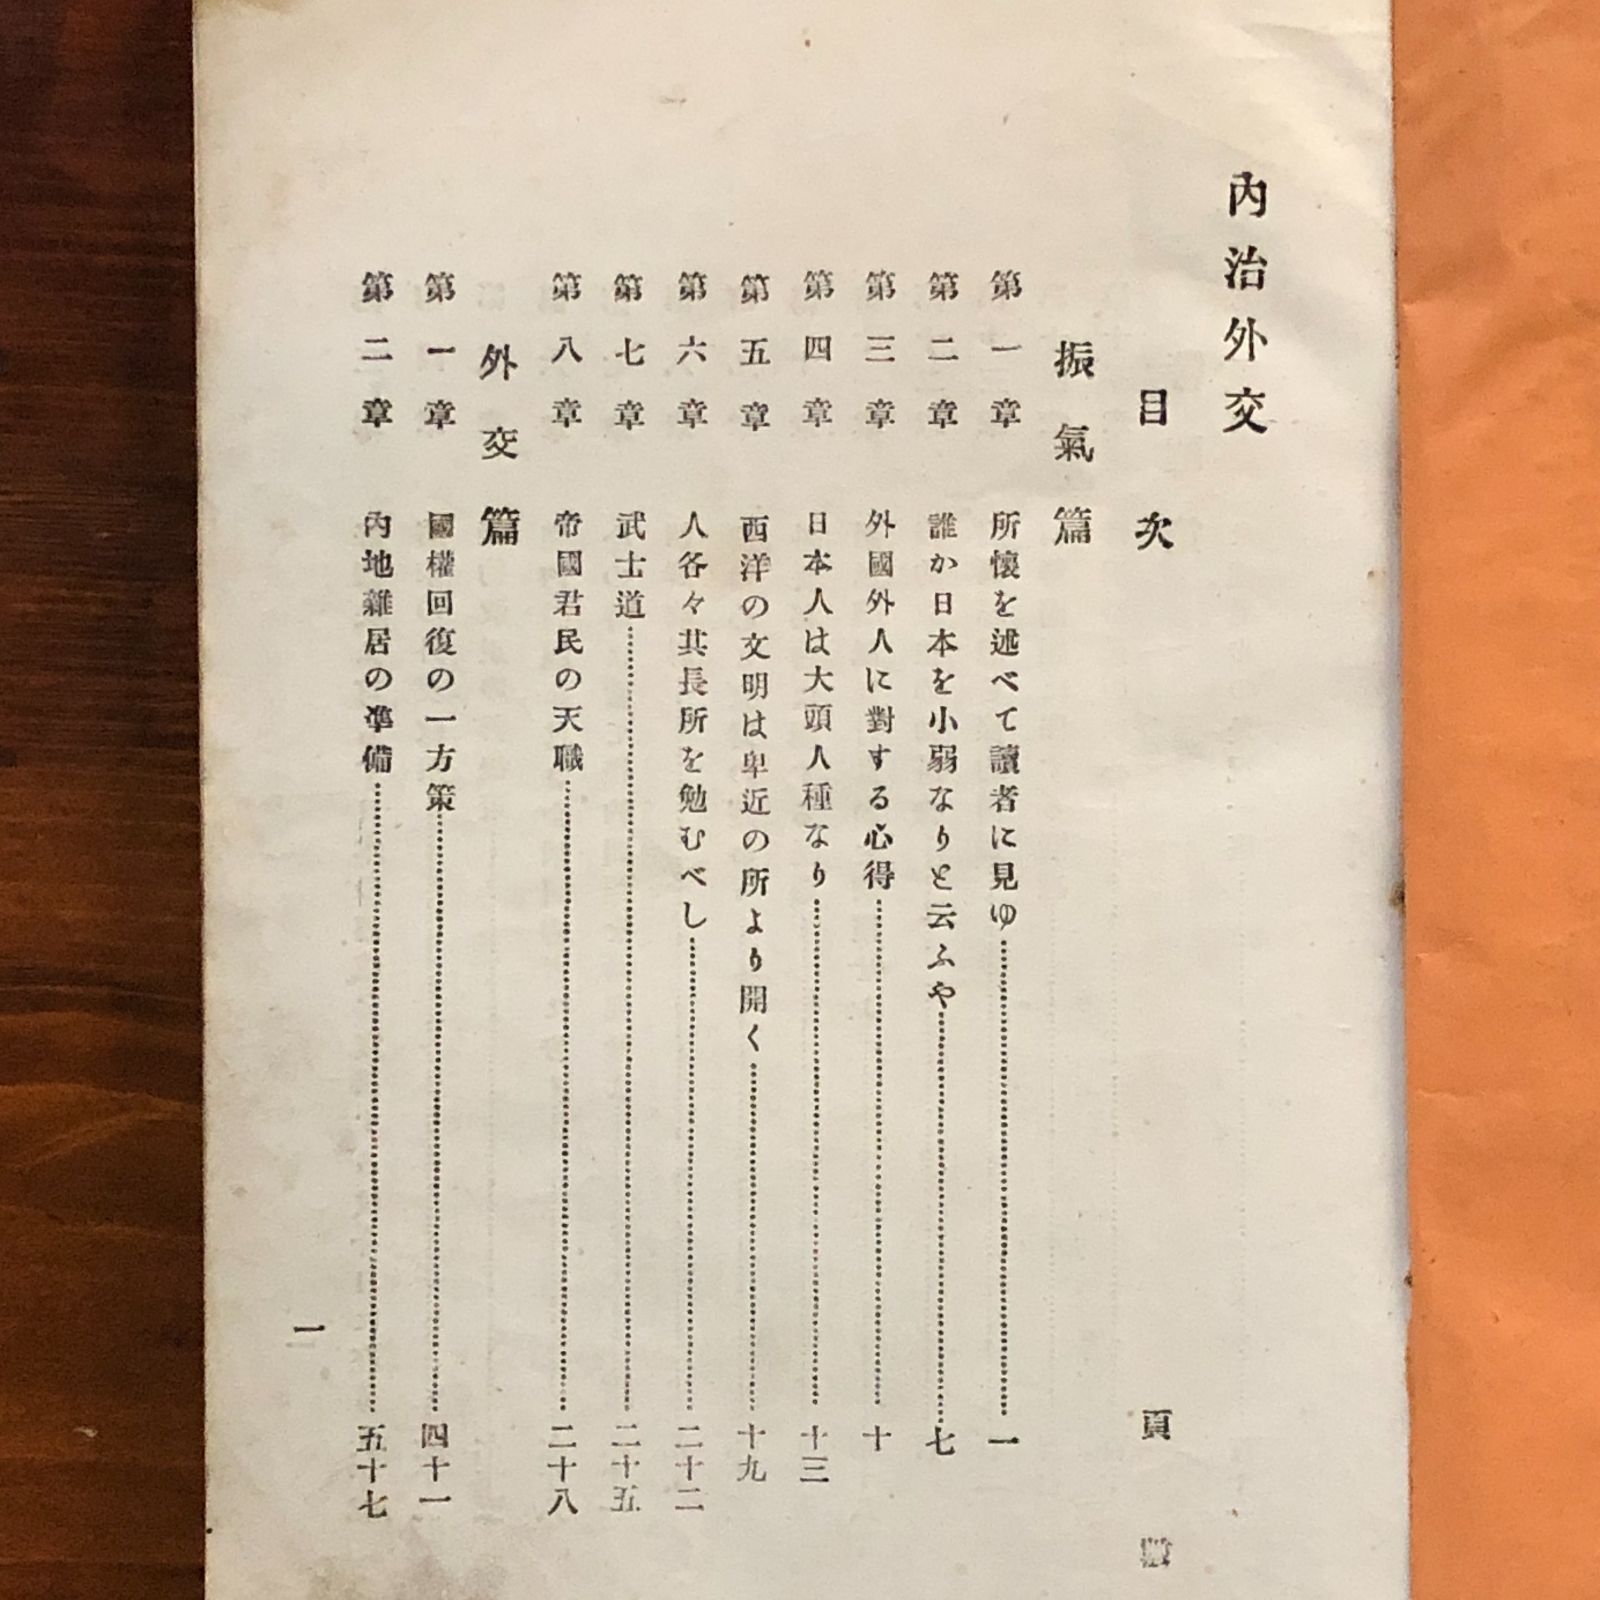 內治外交
目次
頁數
振氣篇
第一章 所懷を述べて讀者に見ゆ……一
第二章 誰か日本を小弱なりと云ふや……七
第三章 外國外人に對する心得……十
第四章 日本人は大頭人種なり……十三
第五章 西洋の文明は卑近の所より開く……十九
第六章 人各々其長所を勉むべし……二十二
第七章 武士道……二十五
第八章 帝國君民の天職……二十八
外交篇
第一章 國權回復の一方策……四十一
第二章 內地雜居の準備……五十七
一